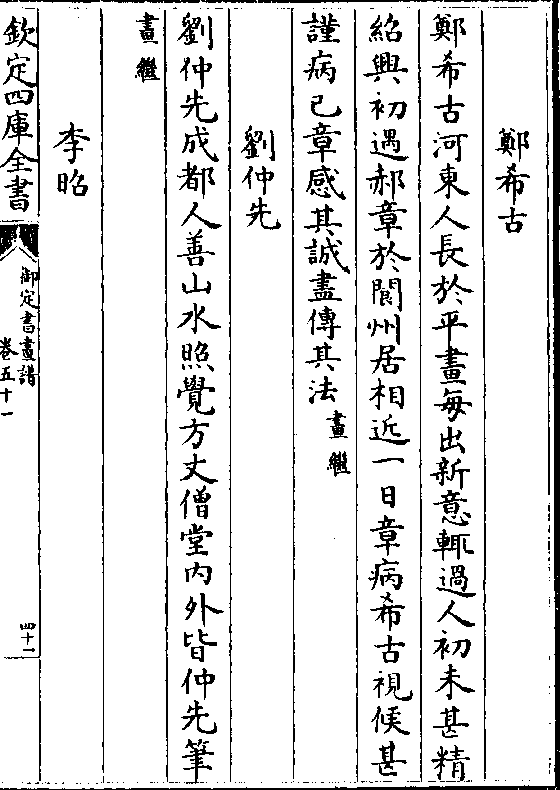 鄭希古
鄭希古河東人長於平畫每出新意輒過人初未甚精
紹興初遇郝章於閬州居相近一日章病希古視候甚
謹病已章感其誠盡傳其法畫繼
劉仲先
劉仲先成都人善山水照覺方丈僧堂内外皆仲先筆
畫繼
李昭
欽定四庫全書
御定書畫譜
卷五十一
四十一